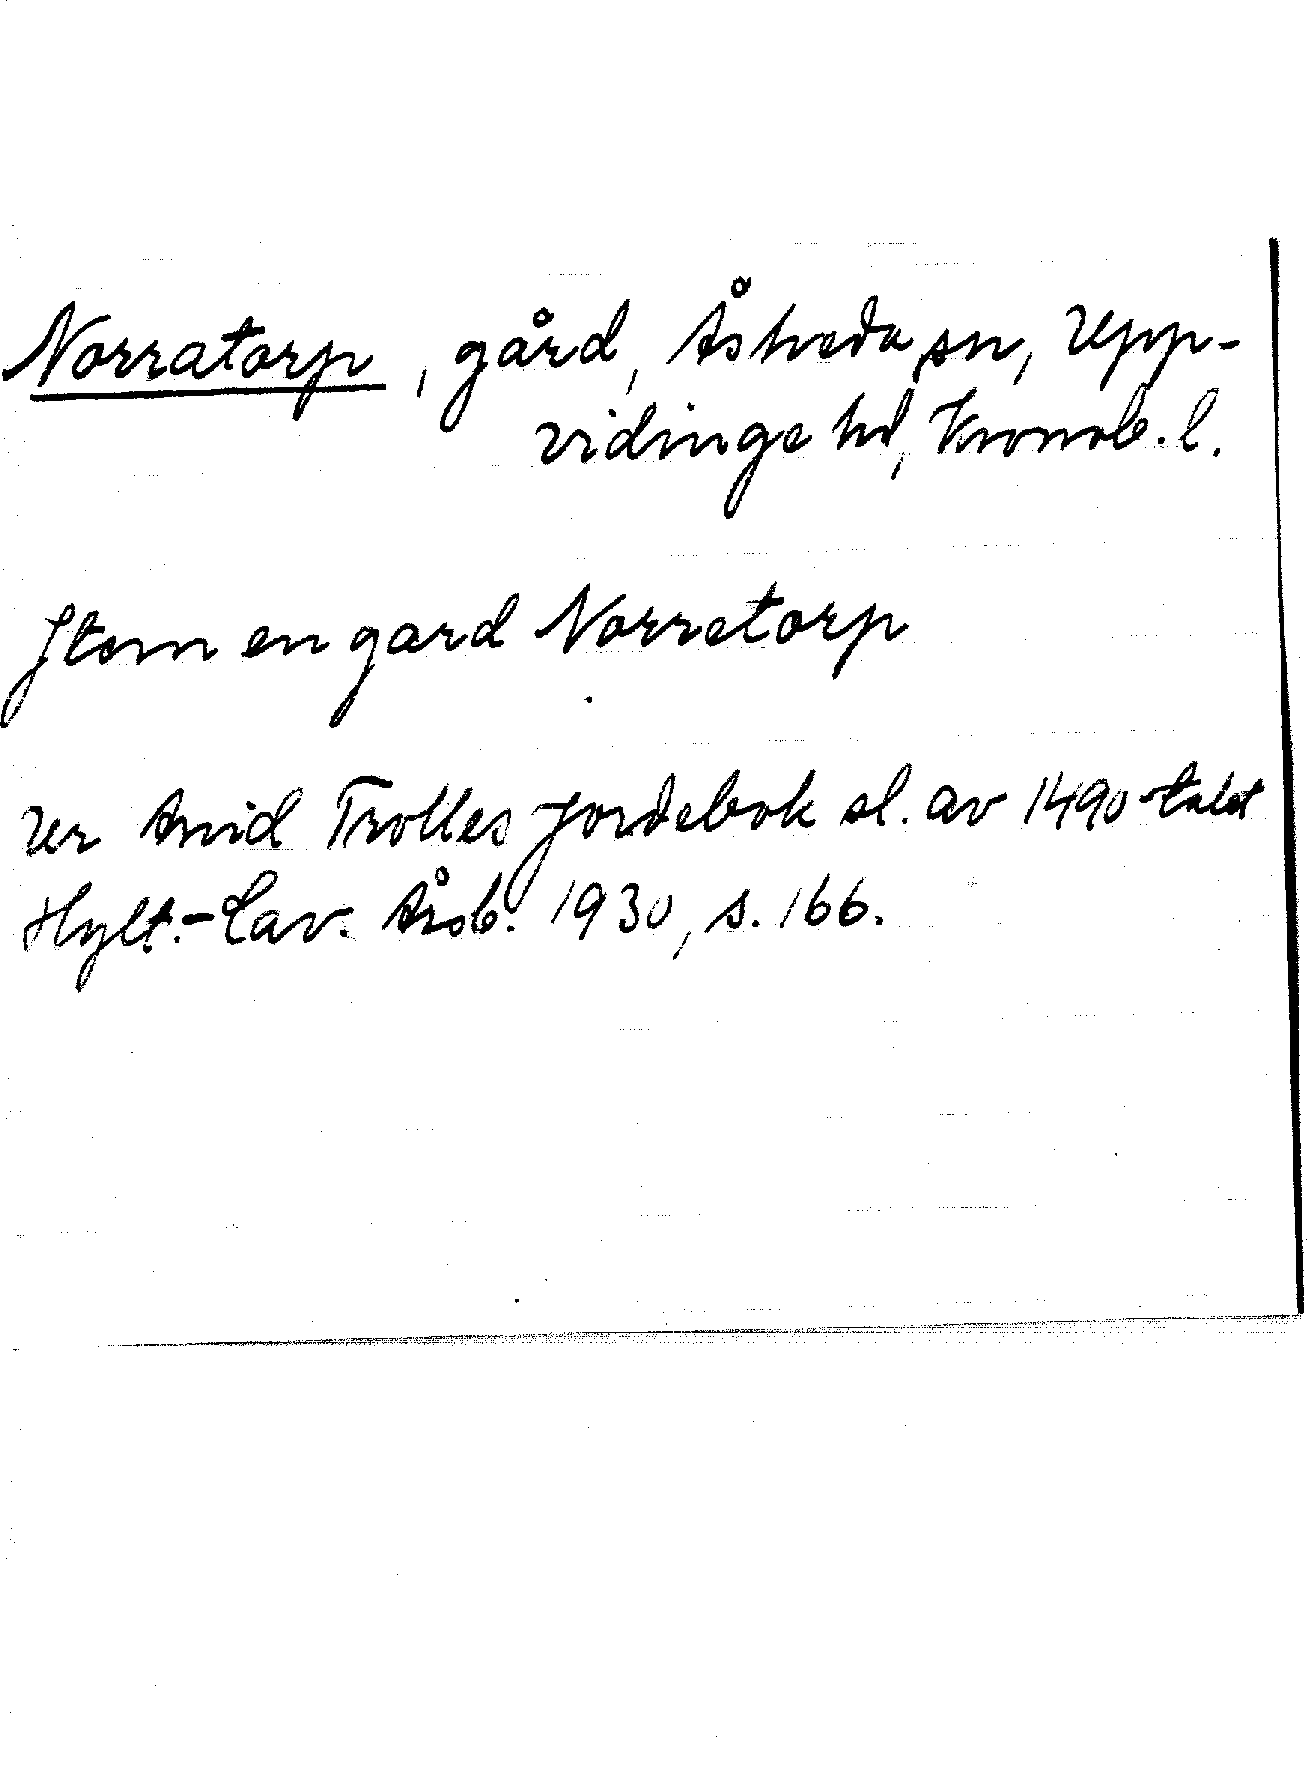 Norratorp, gård, Åsheda sn, Upp-
vidinge hd, Kronob. l.
Item en gard Norretorp
Ur Arvid Trolles Jordebok sl. av 1490-talet
Hylt.-Cav. Årsb. 1930, s. 166.